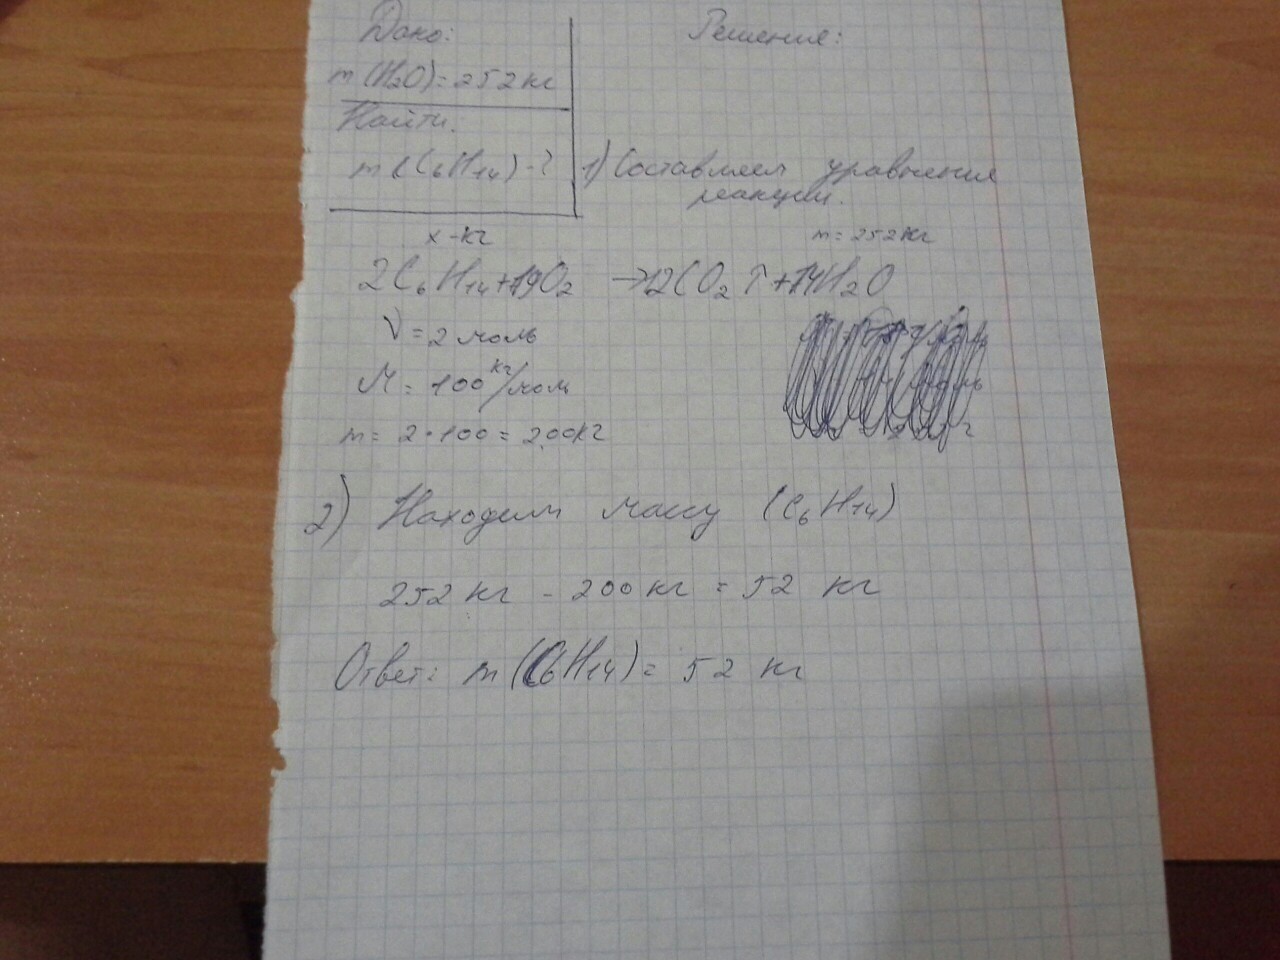 Дано:
Решение:
m (H₂O) = 252 кг
Найти:
m (C₆H₁₄) - ?
1) Составляем уравнение
реакции.
x - кг
m = 252 кг
2C₆H₁₄ + 19O₂ → 12CO₂ ↑ + 14H₂O
ν = 2 моль
M = 100 кг/моль
m = 2 · 100 = 200 кг
2) Находим массу (C₆H₁₄)
252 кг - 200 кг = 52 кг
Ответ: m (C₆H₁₄) = 52 кг